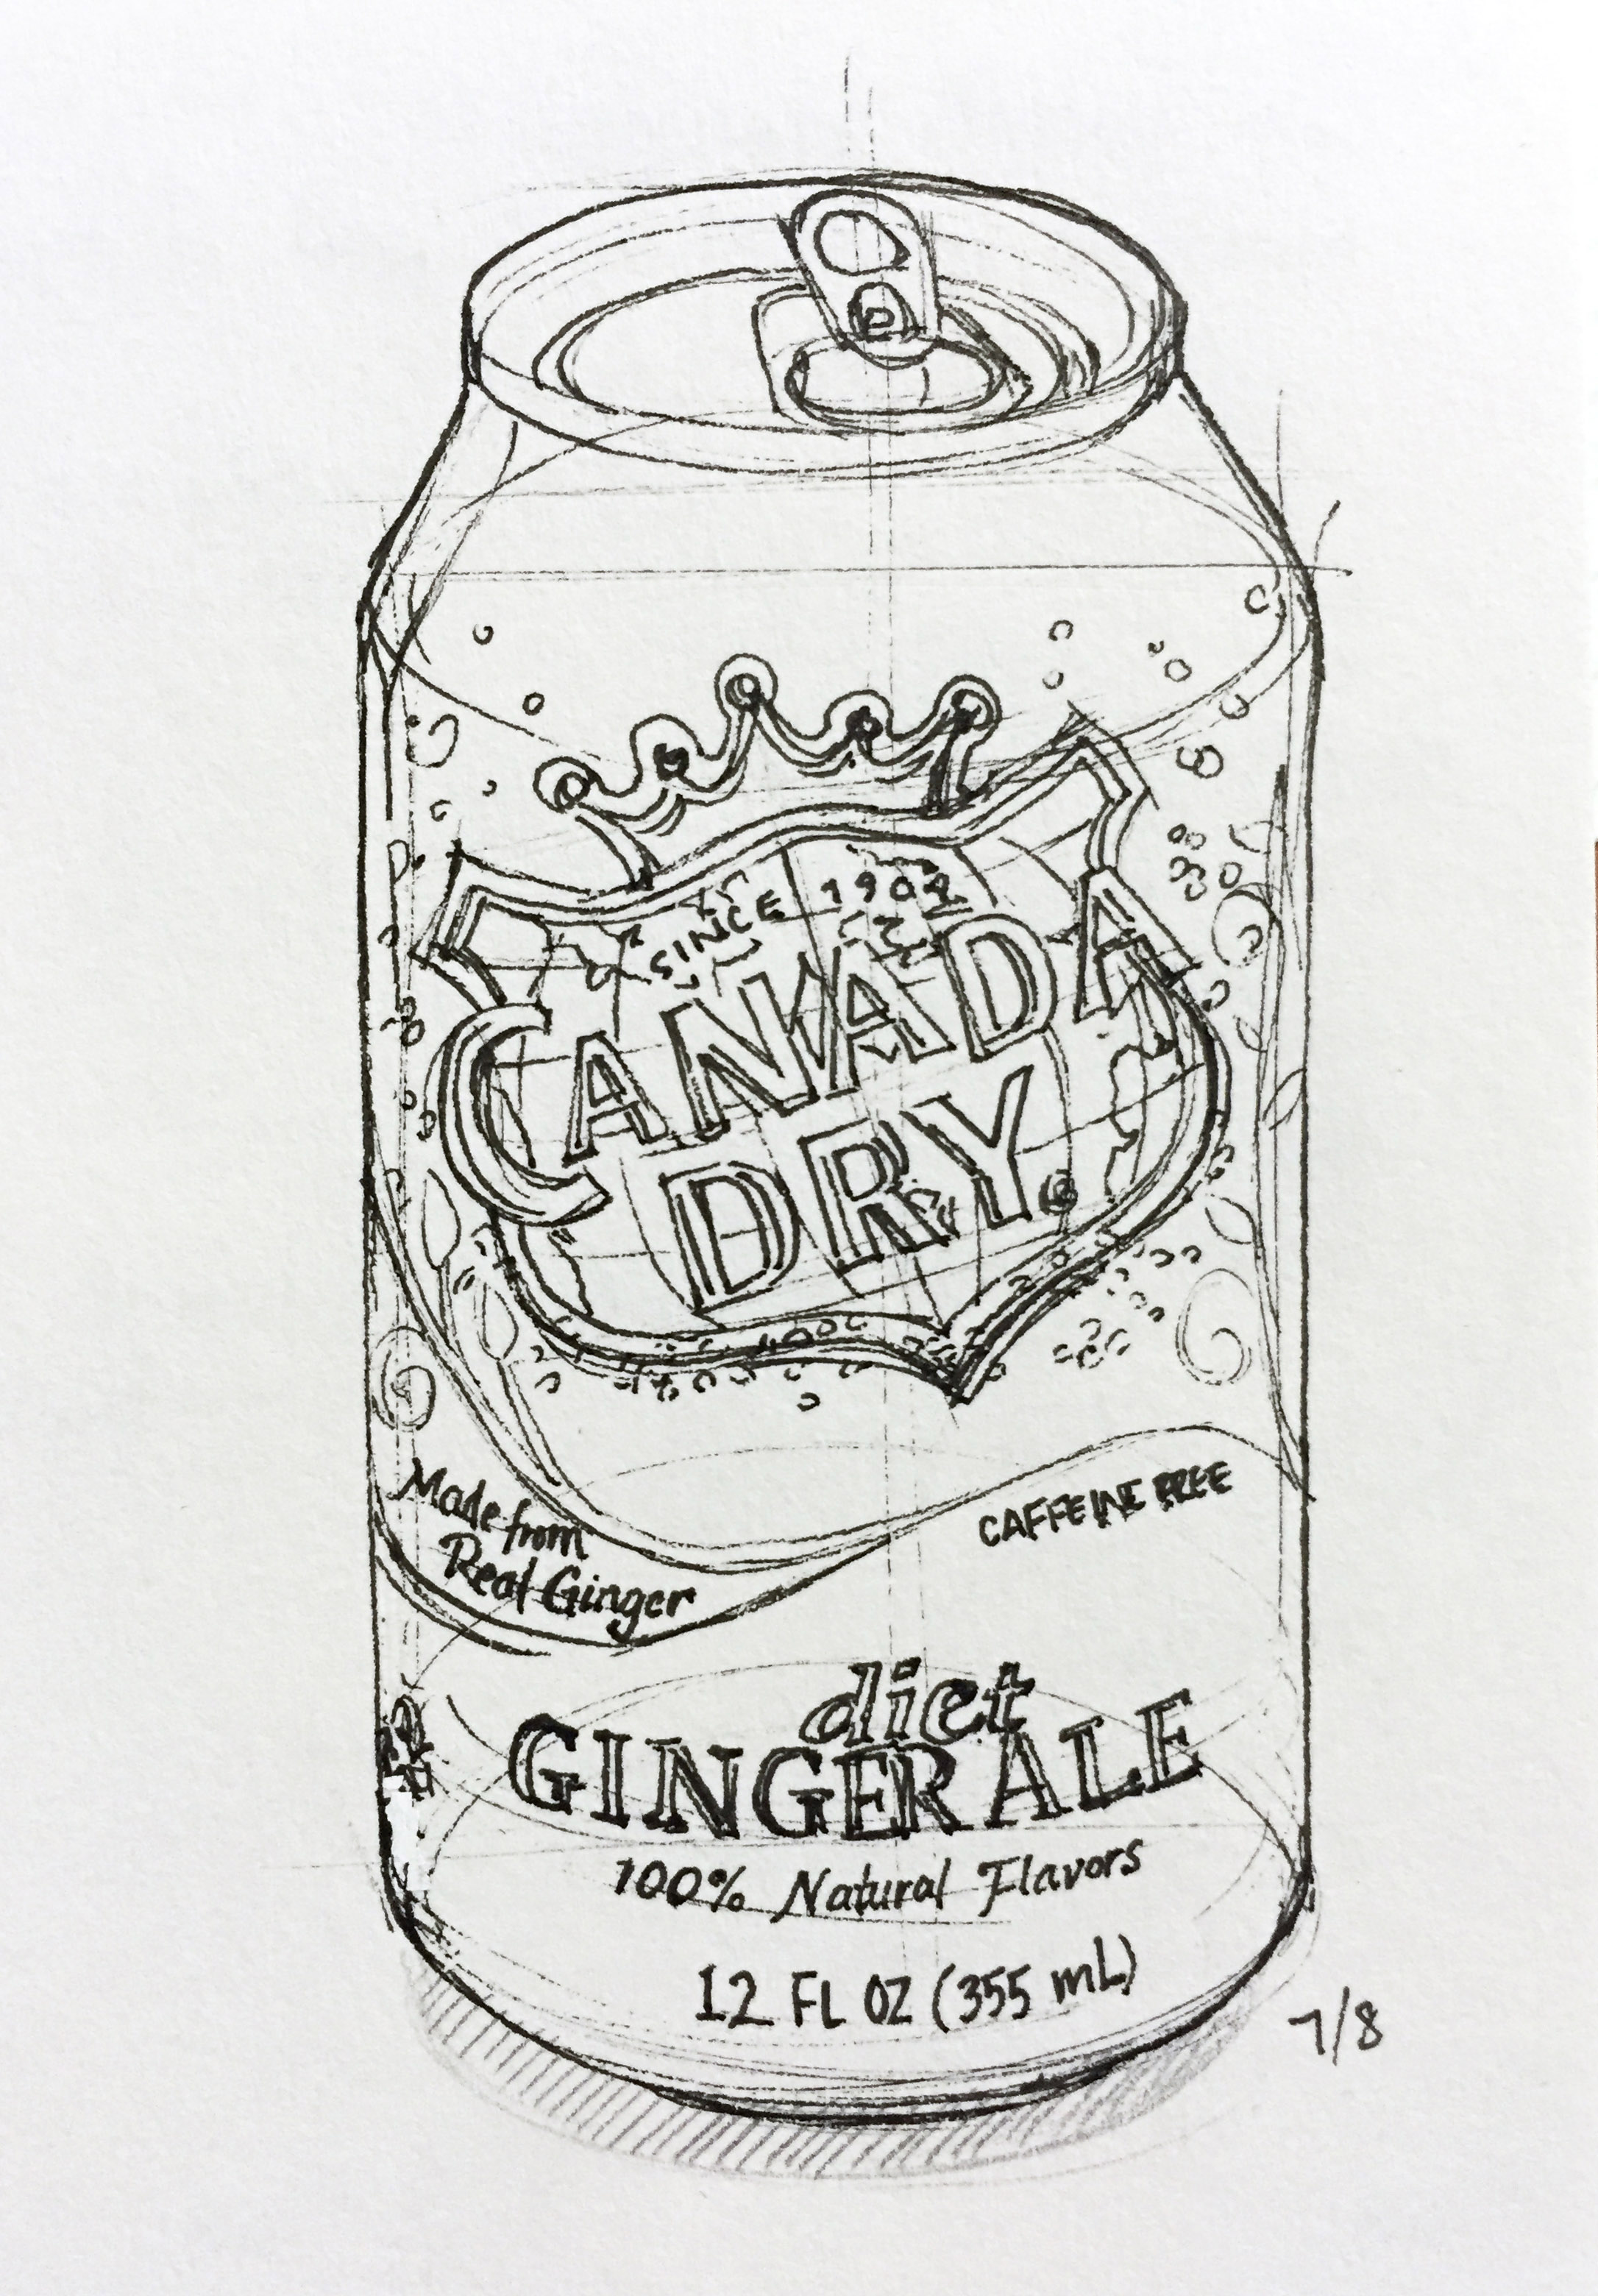 SINCE 1904
CANADA
DRY
Made from
Real Ginger
CAFFEINE FREE
diet
GINGER ALE
100% Natural Flavors
12 FL OZ (355 mL)
7/8